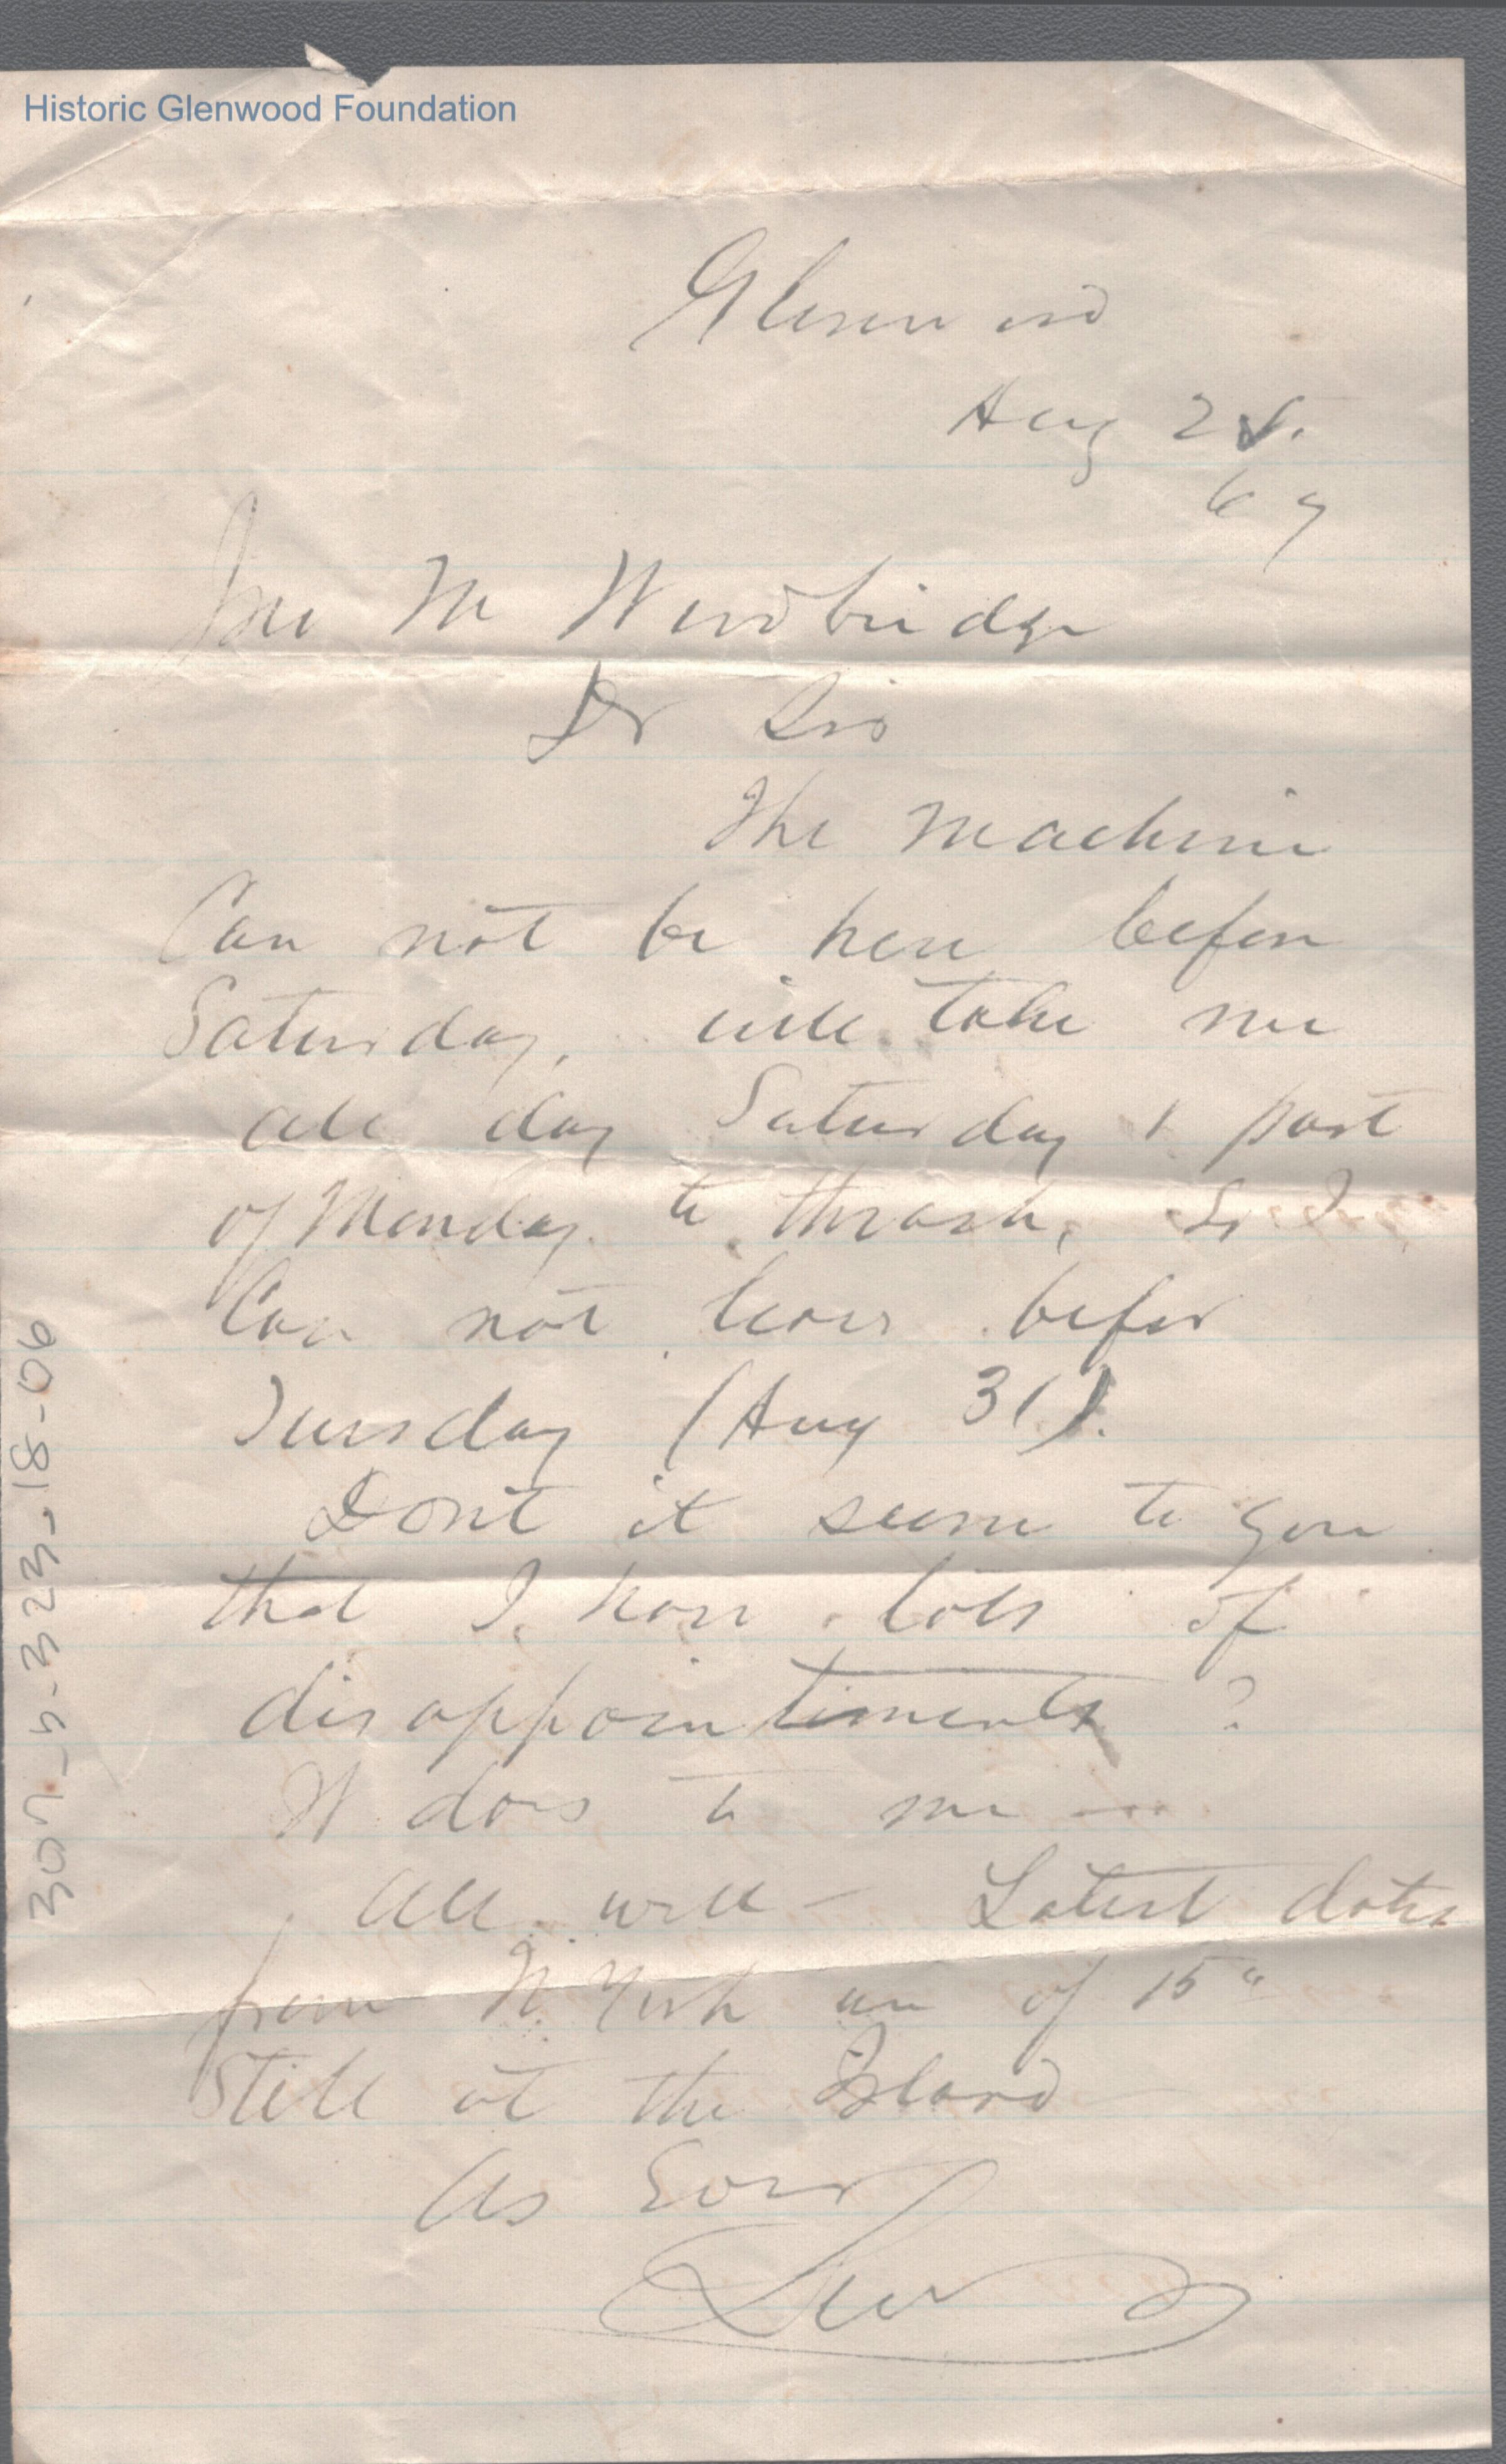 Historic Glenwood Foundation
Glenwood
Aug 25.
69
Jno M Woodbridge
Dr Sir
The machine
Can not be here before
Saturday, will take me
all day Saturday & part
of Monday to thrash, So I
Can not leave before
Tuesday (Aug 31).
Dont it seem to you
that I have lots of
disappointments ?
It does to me —
All well — Latest dates
from N. York are of 15"
Still at the Island
As Ever
Lew
307-5-323-18-06